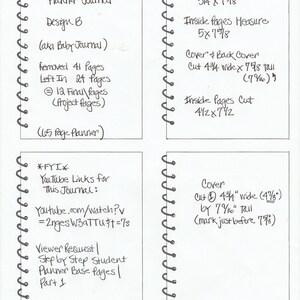 Planner Journal
Design B
(aka Baby Journal)
Removed 41 Pages
Left In 24 Pages
@ 12 Final Pages
(Project Pages)
(65 Page Planner)
Inside Pages Measure
5 x 7 5/8
Cover & Back Cover
Cut 4 3/4 wide x 7 5/8 Tall
(7 9/16)
Inside Pages Cut
4 1/2 x 7 1/2
*FYI*
YouTube Links for
This Journal:
Youtube.com/watch?v
Viewer Request |
Step by Step Student
Planner Base Pages |
Part 1
Cover
Cut 4 3/4" wide
by 7 9/16" Tall
(mark just before